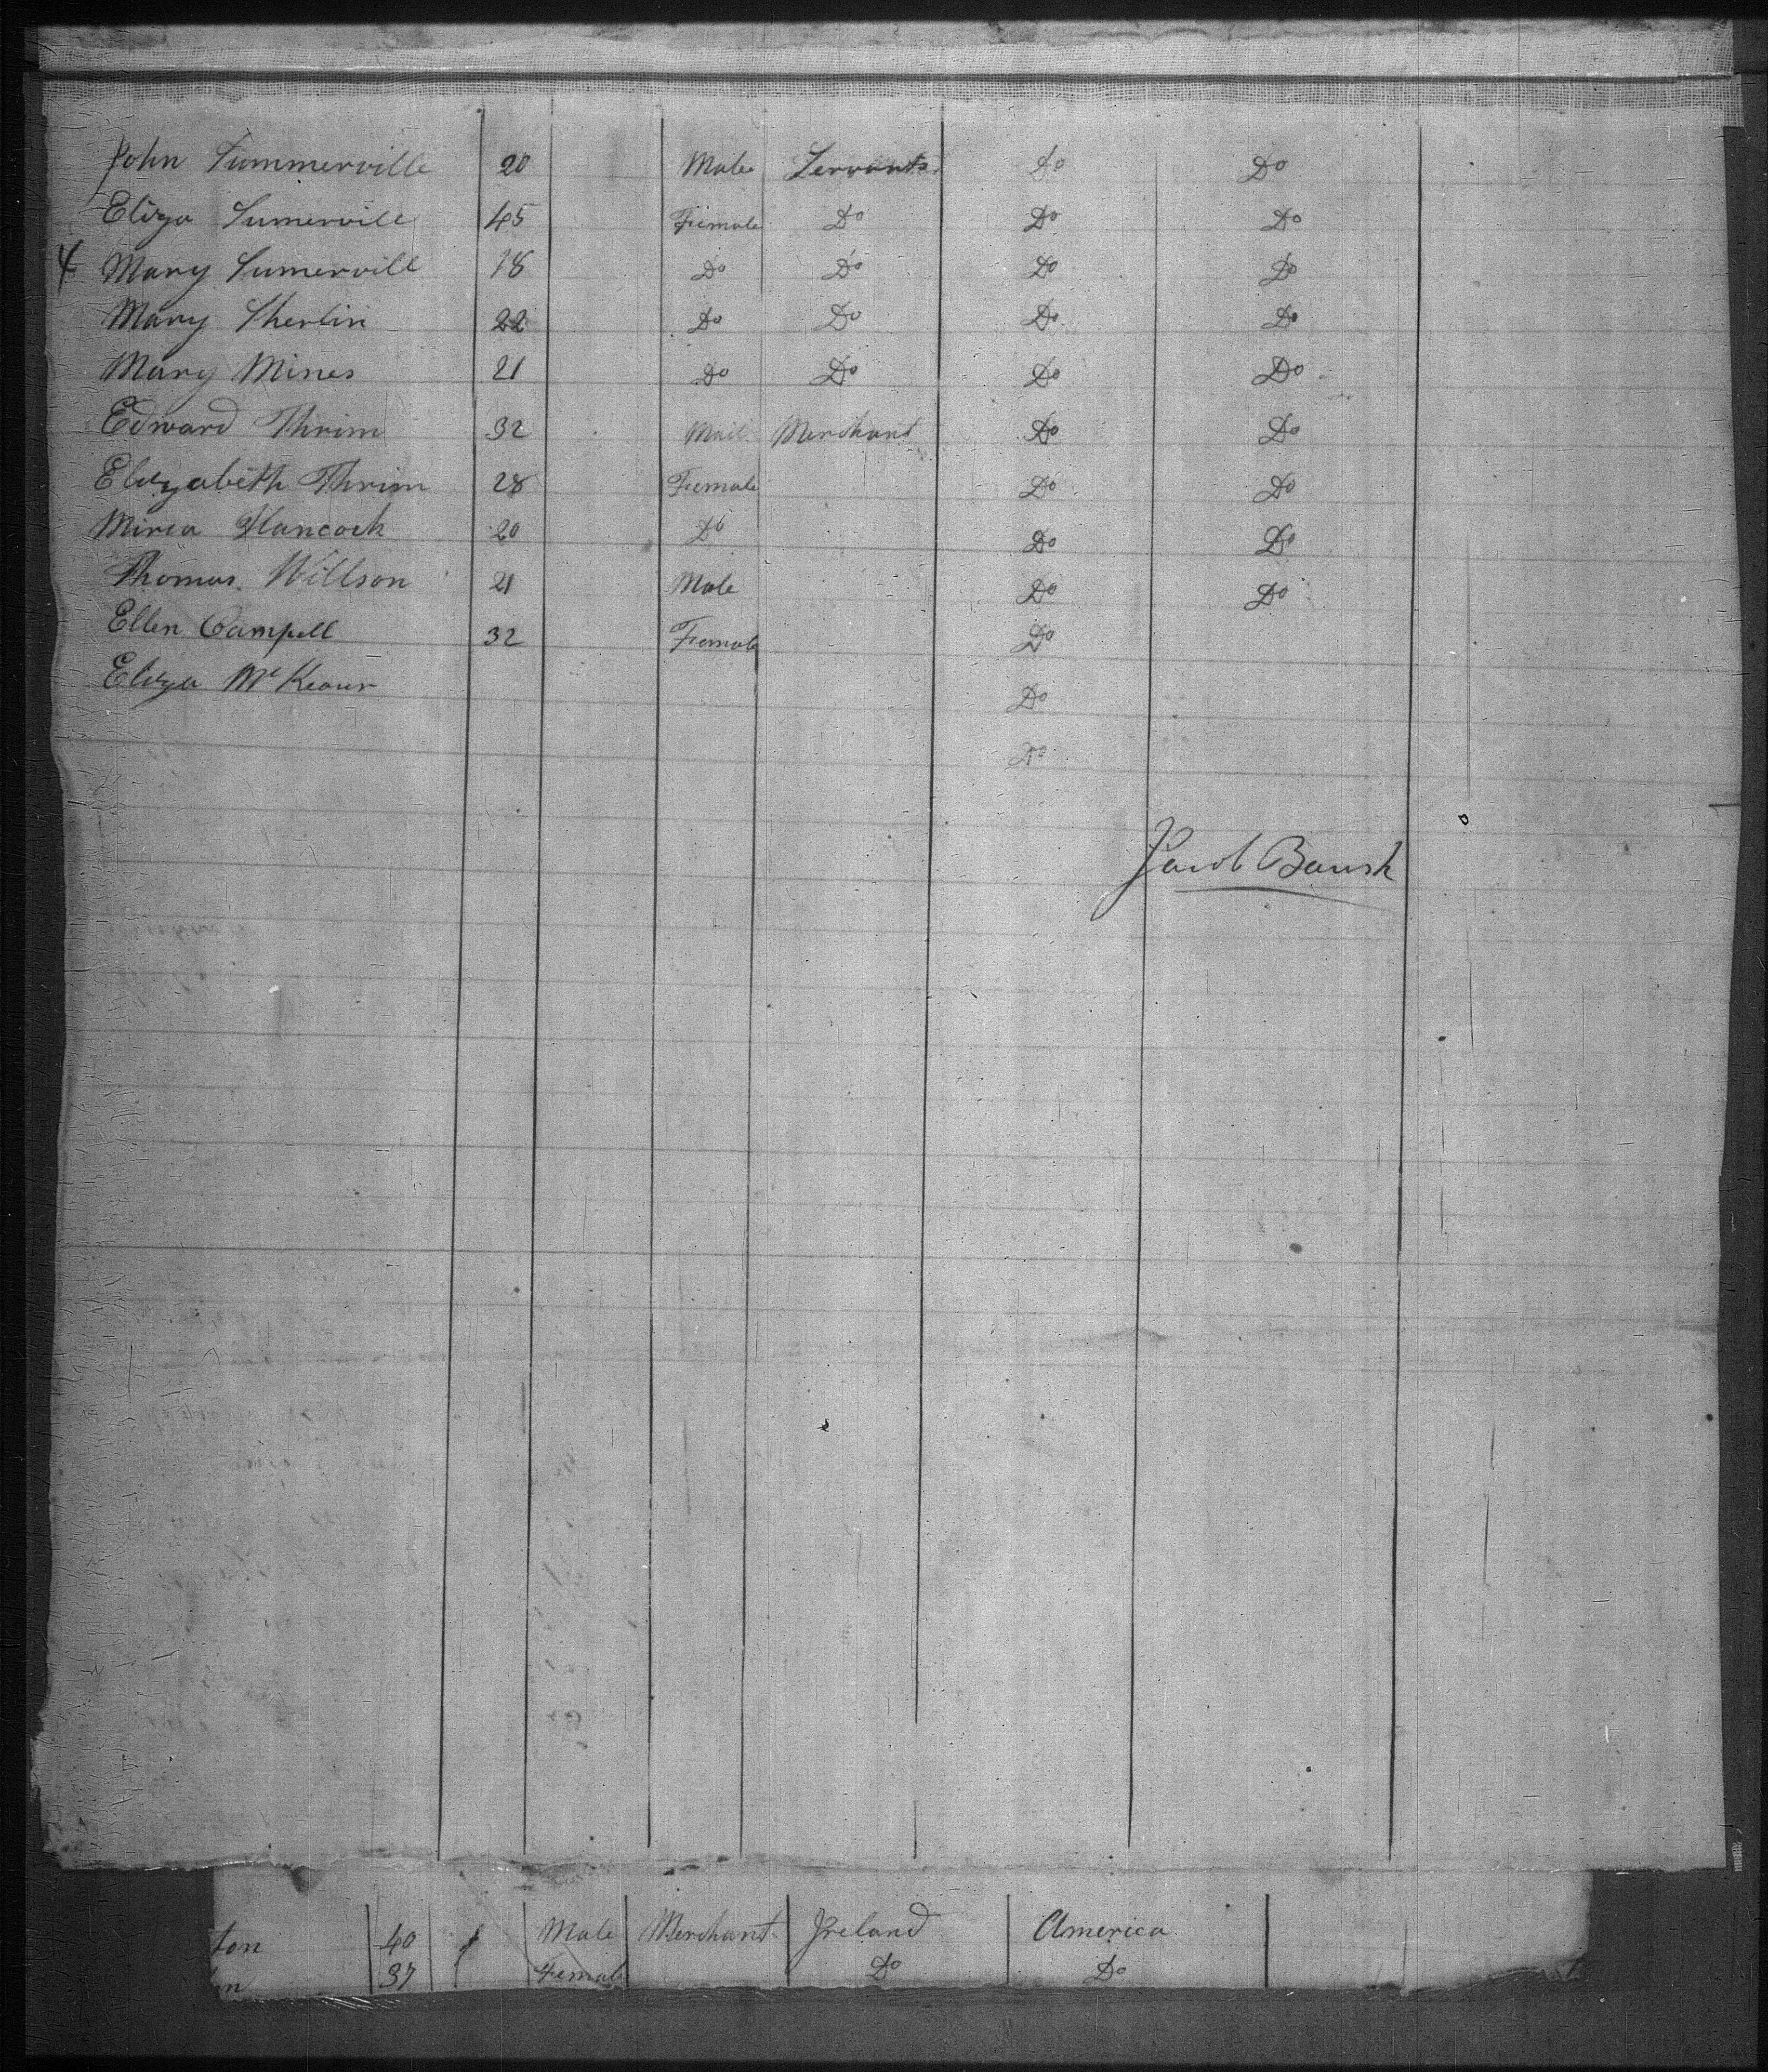 John Summerville 20 Male Servants Do Do
Eliza Sumervill 45 Female Do Do Do
4 Mary Sumervill 18 Do Do Do Do
Mary Sherlin 22 Do Do Do Do
Mary Mines 21 Do Do Do Do
Edward Thrim 32 Mail Merchant Do Do
Elizabeth Thrim 28 Female Do Do
Hancock 20 Do Do Do
Thomas Willson 21 Male Do Do
Ellen Campell 32 Female Do
Eliza Do
Do
Jacob
ton 40 Male Merchant Ireland America
n 37 Female Do Do